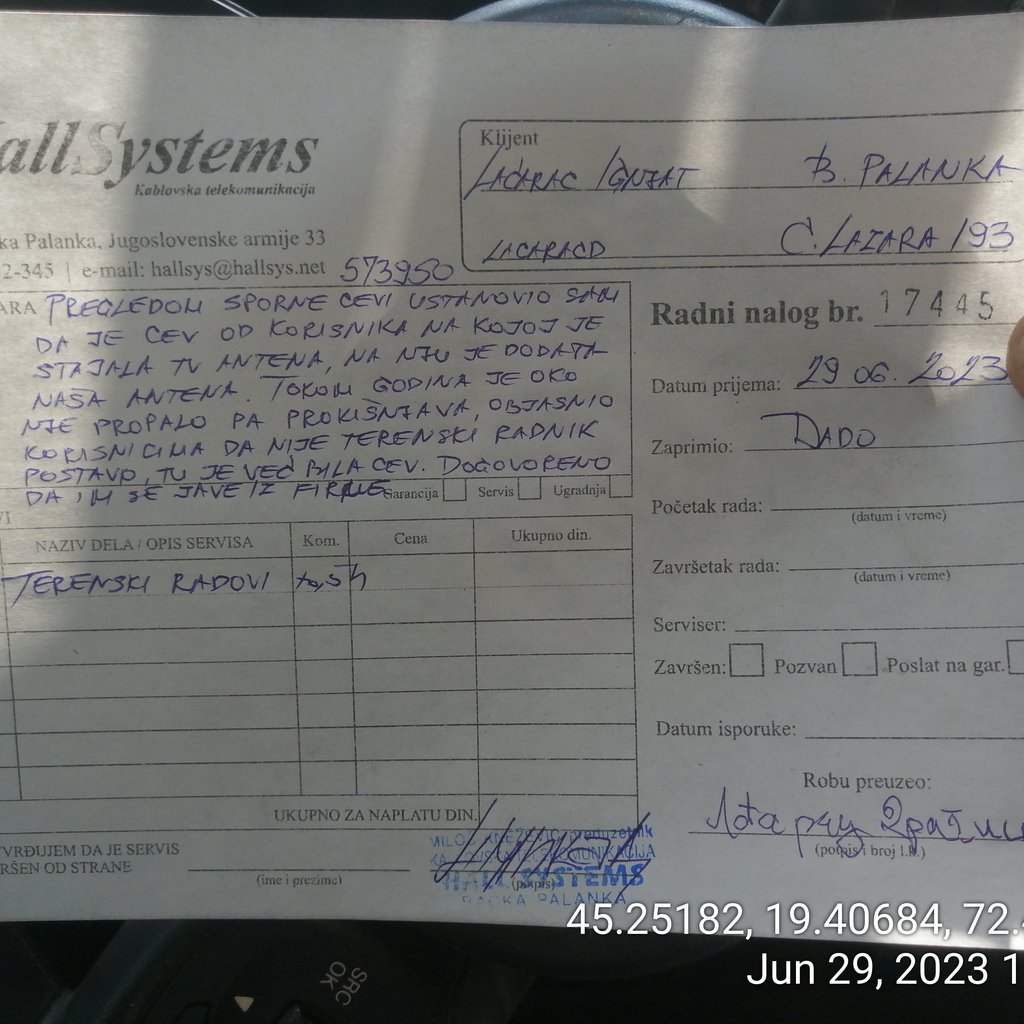 allSystems
Kablovska telekomunikacija
ka Palanka, Jugoslovenske armije 33
2-345 | e-mail: hallsys@hallsys.net 573950
Klijent
LAĆARAC IGNJAT B. PALANKA
LACARACD C. LAZARA 193
ARA PREGLEDOM SPORNE CEVI USTANOVIO SAM
DA JE CEV OD KORISNIKA NA KOJOJ JE
STAJALA TV ANTENA, NA NJU JE DODATA
NAŠA ANTENA. TOKOM GODINA JE OKO
NJE PROPALO PA PROKIŠNJAVA, OBJASNIO
KORISNICIMA DA NIJE TERENSKI RADNIK
POSTAVIO, TU JE VEĆ BILA CEV. DOGOVORENO
DA IM SE JAVE IZ FIRME
Garancija Servis Ugradnja
Radni nalog br. 17445
Datum prijema: 29 06. 2023
Zaprimio: DADO
Početak rada:
(datum i vreme)
Završetak rada:
(datum i vreme)
Serviser:
Završen: Pozvan Poslat na gar.
Datum isporuke:
Robu preuzeo:
(potpis i broj l.k.)
VI
NAZIV DELA / OPIS SERVISA Kom. Cena Ukupno din.
TERENSKI RADOVI
UKUPNO ZA NAPLATU DIN.
TVRĐUJEM DA JE SERVIS
RŠEN OD STRANE
(ime i prezime)
(potpis)
MILOŠ KNEŽEVIĆ preduzetnik
KABLOVSKA TELEKOMUNIKACIJA
HALL SYSTEMS
BAČKA PALANKA
45.25182, 19.40684, 72.4
Jun 29, 2023 1
SRC
OK